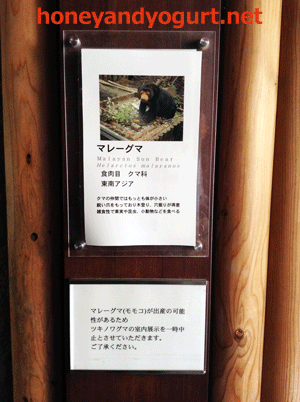 honeyandyogurt.net
マレーグマ
Malayan Sun Bear
Helarctos malayanus
食肉目 クマ科
東南アジア
クマの仲間ではもっとも体が小さい
鋭い爪をもっており木登り、穴掘りが得意
雑食性で果実や昆虫、小動物などを食べる
マレーグマ(モモコ)が出産の可能
性があるため
ツキノワグマの室内展示を一時中
止とさせていただきます。
ご了承ください。